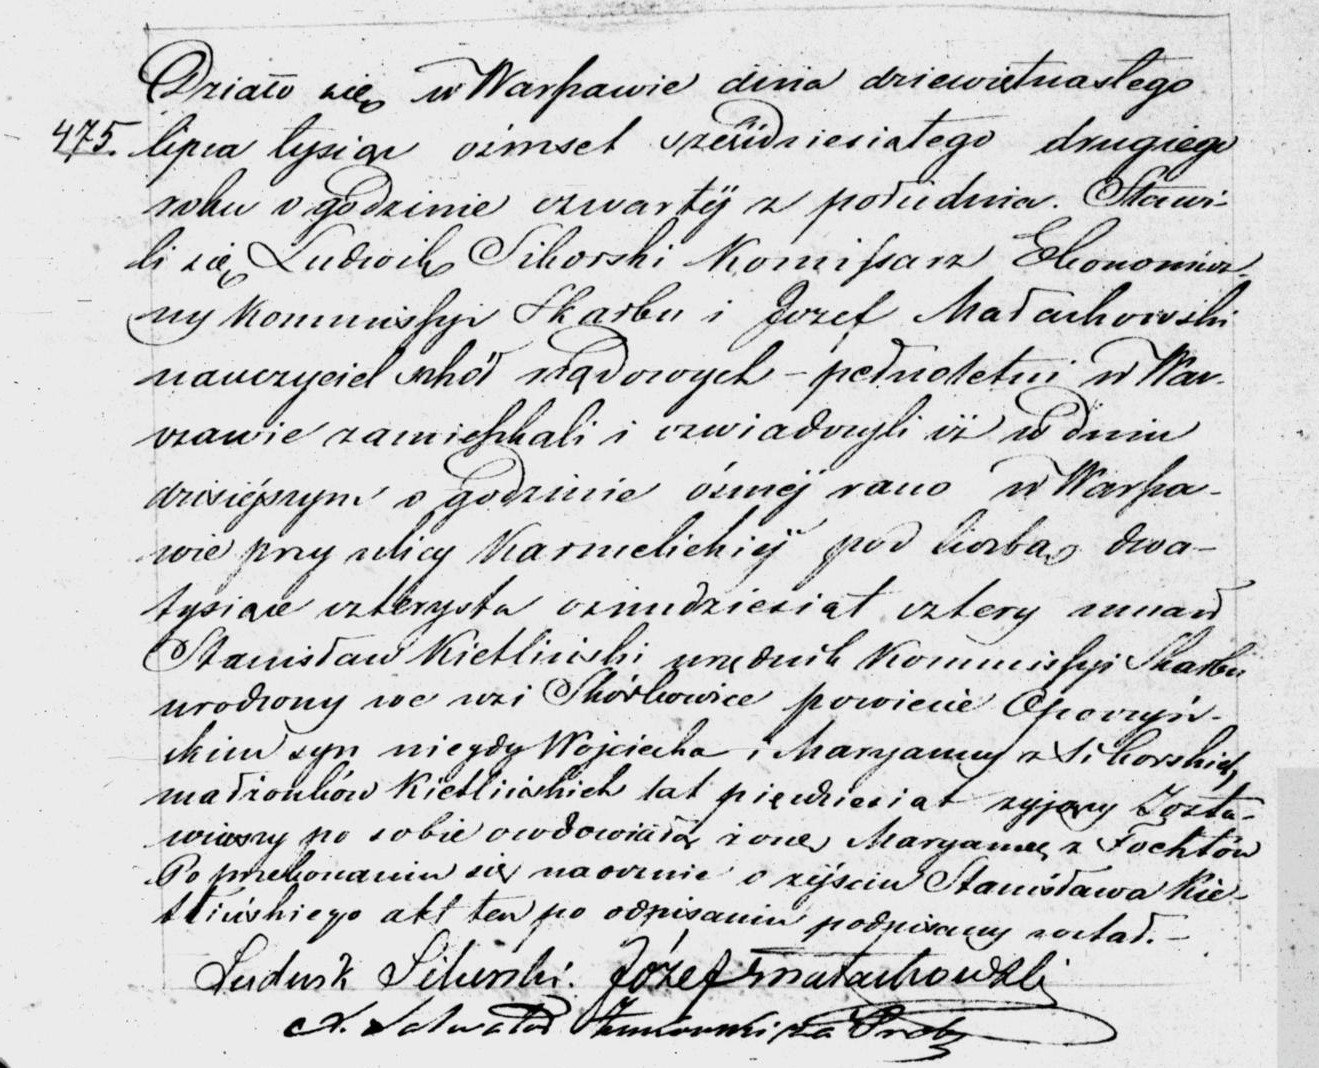 Działo się w Warszawie dnia dziewiętnastego
475. lipca tysiąc ośmset sześćdziesiątego drugiego
roku o godzinie czwartéj z południa. Stawi-
li się Ludwik Sikorski Kommissarz Ekonomicz-
ny Kommissyi Skarbu i Jozef Małachowski
nauczyciel szkół rządowych – pełnoletni w War-
szawie zamieszkali i oświadczyli iż w dniu
dzisiéjszym o godzinie ósméj rano w Warsza-
wie przy ulicy Karmelickiéj pod liczbą dwa-
tysiące czterysta ośmdziesiąt cztery umarł
Stanisław Kietliński urzędnik Kommissyi Skarbu
urodzony we wsi Skórkowice powiecie Opoczyń-
skim syn niegdy Wojciecha i Maryanny z Sikorskich
małżonków Kietlińskich lat pięćdziesiąt żyjący Zosta-
wiwszy po sobie owdowiałą żonę Maryannę z Fochtów
Po przekonaniu się naocznie o zéjściu Stanisława Kie-
tlińskiego akt ten po odpisaniu podpisany został. –
Ludwik Sikorski. Józef Małachowski
X.